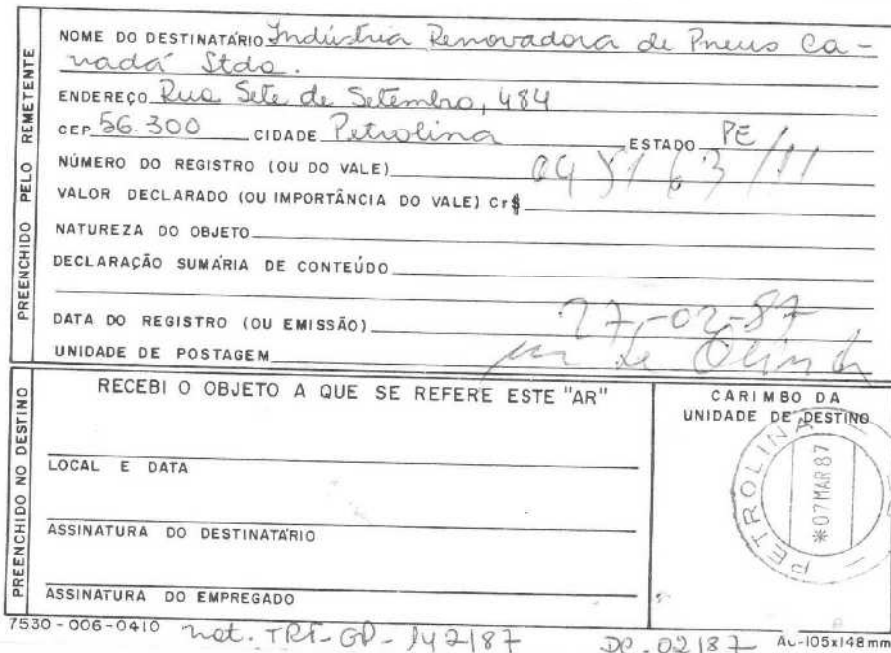 PREENCHIDO PELO REMETENTE
NOME DO DESTINATÁRIO Indústria Renovadora de Pneus Ca-
nadá Ltda.
ENDEREÇO Rua Sete de Setembro, 484
CEP 56.300 CIDADE Petrolina ESTADO PE
NÚMERO DO REGISTRO (OU DO VALE)
VALOR DECLARADO (OU IMPORTÂNCIA DO VALE) Cr$
NATUREZA DO OBJETO
DECLARAÇÃO SUMÁRIA DE CONTEÚDO
DATA DO REGISTRO (OU EMISSÃO) 27-02-87
UNIDADE DE POSTAGEM
PREENCHIDO NO DESTINO
RECEBI O OBJETO A QUE SE REFERE ESTE "AR"
LOCAL E DATA
ASSINATURA DO DESTINATÁRIO
ASSINATURA DO EMPREGADO
CARIMBO DA
UNIDADE DE DESTINO
PETROLINA
*07MAR87
7530-006-0410 not. TRT-GP-142/87 DC-02187 A6-105x148mm